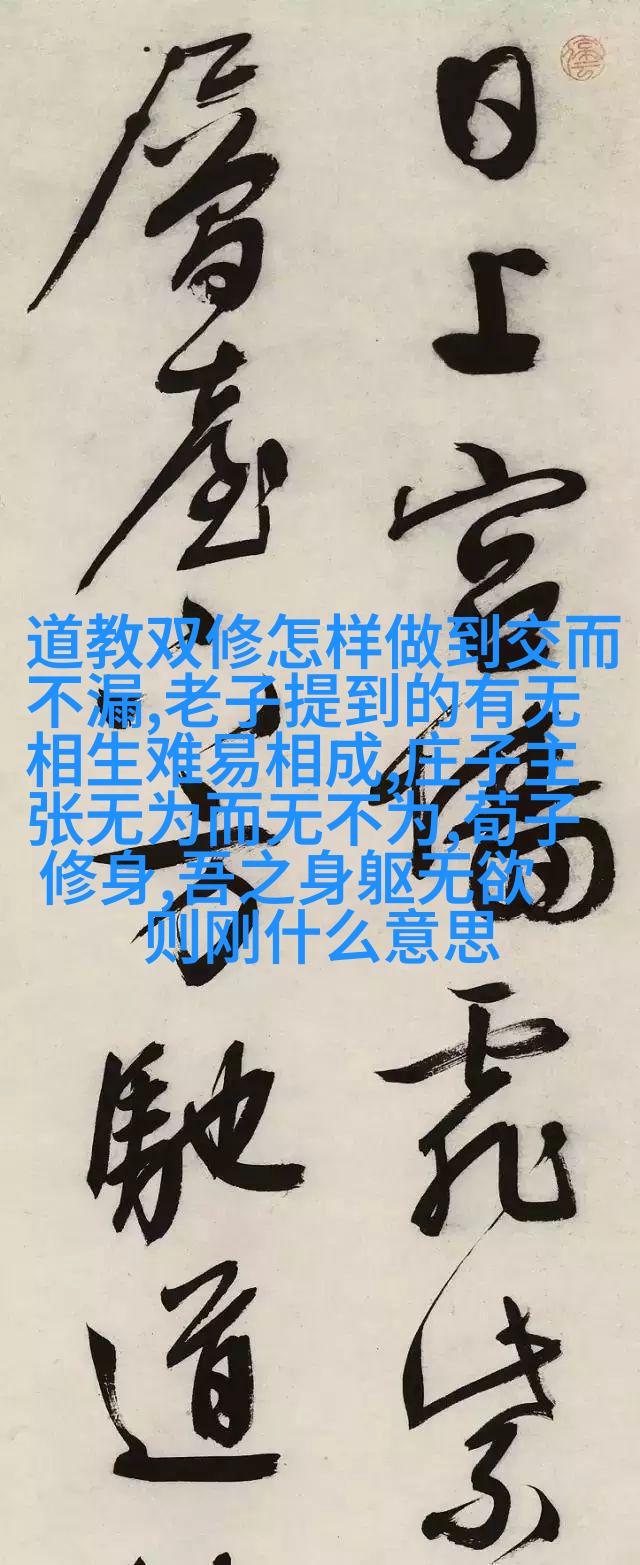 道教双修怎样做到交而
不漏,老子提到的有无
相生难易相成,庄子主
张无为而无不为,荀子
修身,吾之身躯无欲
则刚什么意思
日上宮霏紫
層臺馳道